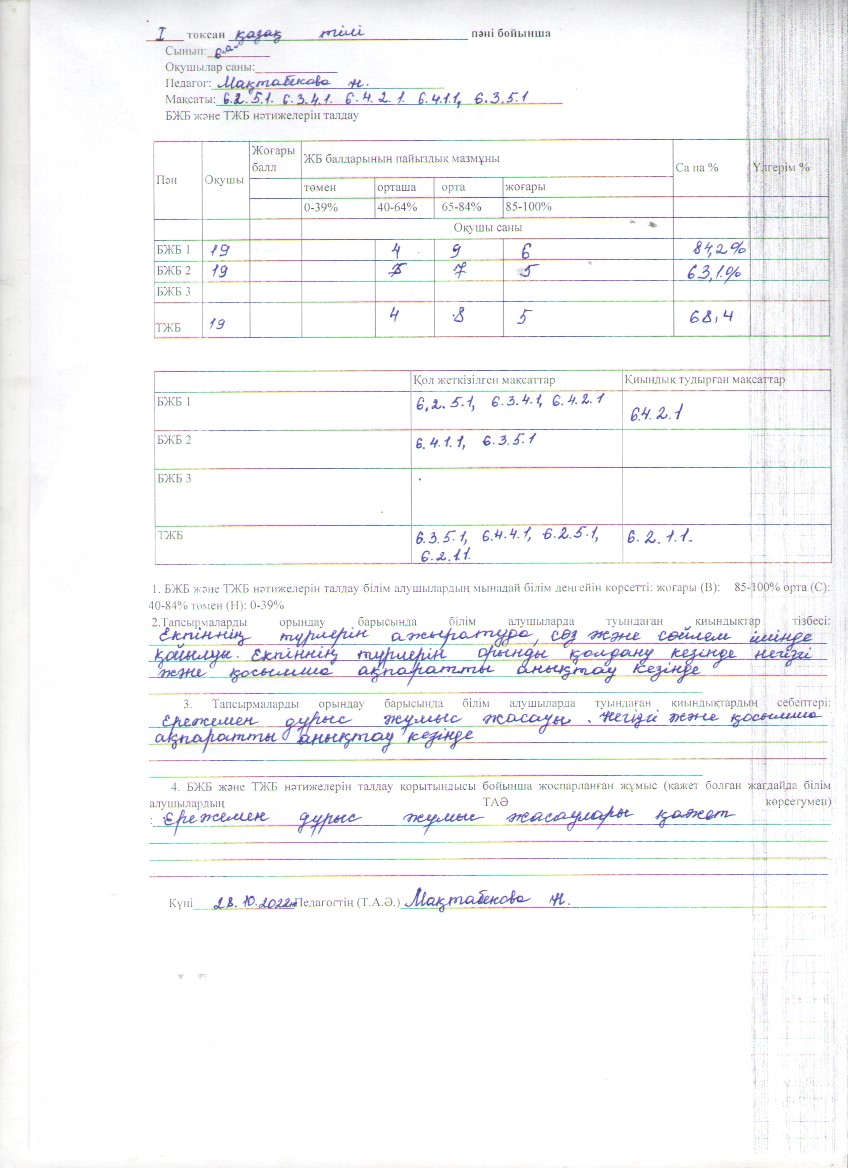 I тоқсан қазақ тілі пәні бойынша
Сынып: 6 "а"
Оқушылар саны:
Педагог: Мақтабекова Н.
Мақсаты: 6.2.5.1. 6.3.4.1. 6.4.2.1. 6.4.1.1, 6.3.5.1
БЖБ және ТЖБ нәтижелерін талдау
Пән Оқушы Жоғары балл ЖБ балдарының пайыздық мазмұны Са па % Үлгерім %
төмен орташа орта жоғары
0-39% 40-64% 65-84% 85-100%
Оқушы саны
БЖБ 1 19 4 9 6 84,2%
БЖБ 2 19 7 5 63,1%
БЖБ 3
ТЖБ 19 4 8 5 68,4
Қол жеткізілген мақсаттар Қиындық тудырған мақсаттар
БЖБ 1 6.2.5.1, 6.3.4.1, 6.4.2.1 6.4.2.1
БЖБ 2 6.4.1.1, 6.3.5.1
БЖБ 3
ТЖБ 6.3.5.1, 6.4.4.1, 6.2.5.1, 6.2.1.1.
6.2.1.1.
1. БЖБ және ТЖБ нәтижелерін талдау білім алушылардың мынадай білім деңгейін көрсетті: жоғары (В): 85-100% орта (С):
40-84% төмен (Н): 0-39%
2.Тапсырмаларды орындау барысында білім алушыларда туындаған қиындықтар тізбесі:
Екпіннің түрлерін ажыратуда, сөз және сөйлем ішінде
қойылуы. Екпіннің түрлерін орынды қолдану кезінде негізгі
және қосымша ақпаратты анықтау кезінде
3. Тапсырмаларды орындау барысында білім алушыларда туындаған қиындықтардың себептері:
Ережемен дұрыс жұмыс жасауы. Негізгі және қосымша
ақпаратты анықтау кезінде
4. БЖБ және ТЖБ нәтижелерін талдау қорытындысы бойынша жоспарланған жұмыс (қажет болған жағдайда білім
алушылардың ТАӘ көрсетумен)
: Ережемен дұрыс жұмыс жасаулары қажет
Күні 28.10.2022ж Педагогтің (Т.А.Ә.) Мақтабекова Н.